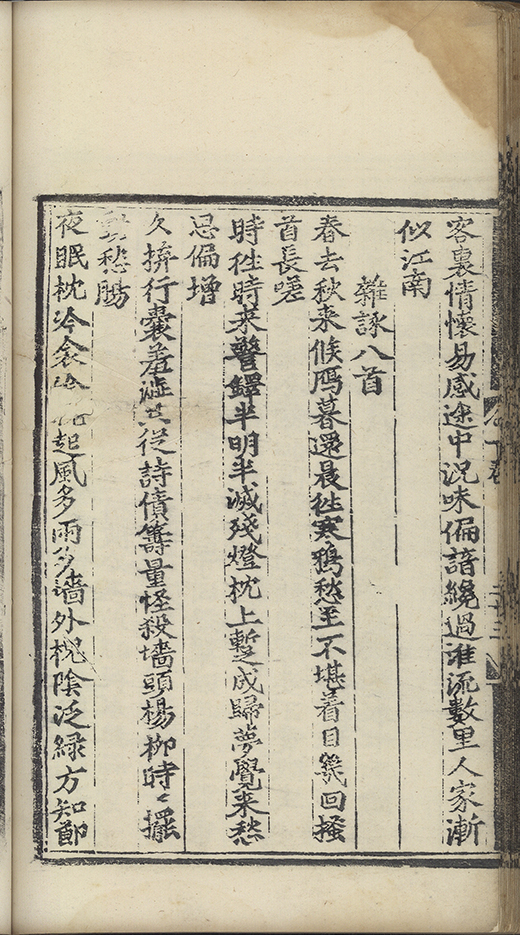 客裏情懷易感途中況味偏諳纔過淮流數里人家漸
似江南
雜詠八首
春去秋来候鴈暮還晨徃寒鴉愁至不堪着目幾回搔
首長嗟
時徃時来警鐸半明半滅殘燈枕上蹔成歸夢覺来愁
思偏增
久擠行囊羞澁其従詩債籌量怪殺墻頭楊柳時〻擺
動愁腸
夜眠枕冷衾冷起風多雨多墻外槐陰泛緑方知節
下卷
二十三